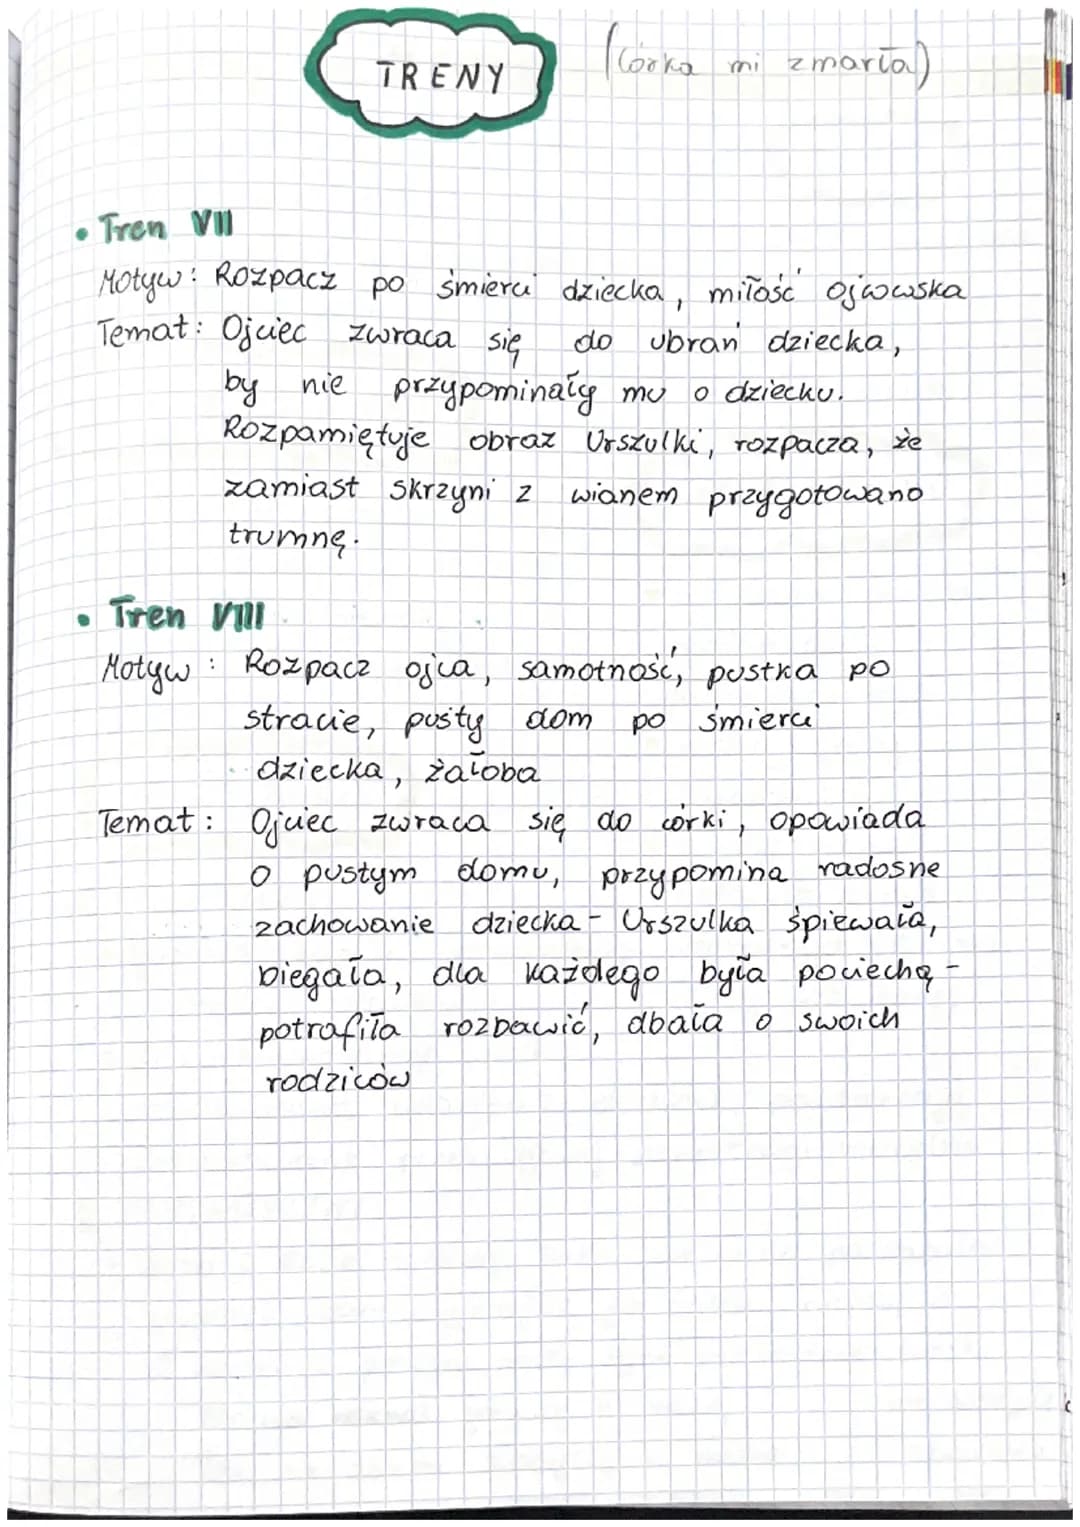 TRENY (córka mi zmarła)
• Tren VII
Motyw: Rozpacz po śmierci dziecka, miłość ojcowska
Temat: Ojciec zwraca się do ubrań dziecka,
by nie przypominały mu o dziecku.
Rozpamiętuje obraz Urszulki, rozpacza, że
zamiast skrzyni z wianem przygotowano
trumnę.
• Tren VIII
Motyw: Rozpacz ojca, samotność, pustka po
stracie, pusty dom po śmierci
dziecka, żałoba
Temat: Ojciec zwraca się do córki, opowiada
o pustym domu, przypomina radosne
zachowanie dziecka - Urszulka śpiewała,
biegała, dla każdego była pociechą -
potrafiła rozbawić, dbała o swoich
rodziców